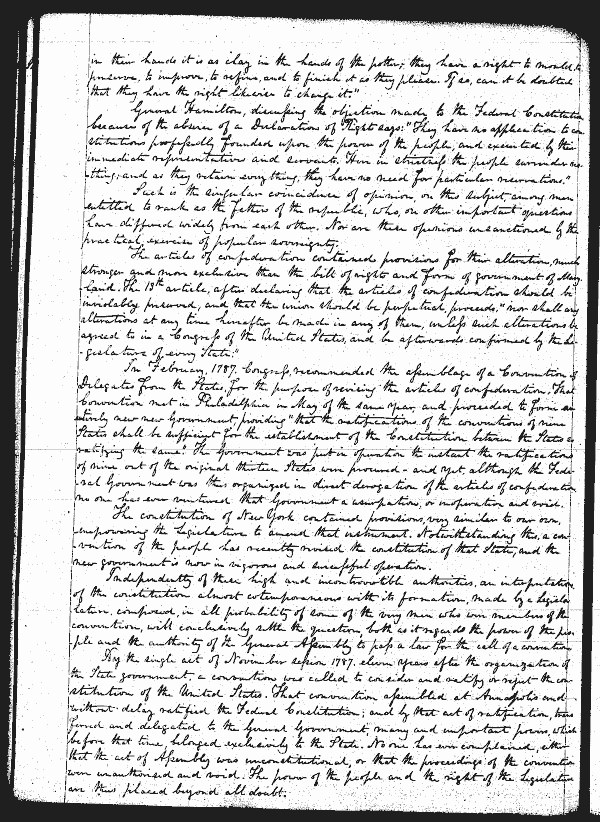 in their hands it is as clay in the hands of the potter; they have a right to mould, to
preserve, to improve, to refine, and to finish it as they please. If so, can it be doubted
that they have the right likewise to change it."
General Hamilton, discussing the objection made to the Federal Constitution
because of the absence of a Declaration of Right says: "They have no application to con
stitutions professedly founded upon the power of the people, and executed by their
immediate representatives and servants. Here in strictness the people surrender no-
-thing; and as they retain every thing, they have no need for particular reservations."
Such is the singular coincidence of opinion, on this subject, among men
entitled to rank as the fathers of the republic, who, on other important questions
have differed widely from each other. Nor are these opinions unsanctioned by the
practical exercise of popular sovereignty.
The articles of confederation contained provisions for their alteration, much
stronger and more exclusive than the bill of rights and form of government of Mary-
-land. The 13th article, after declaring that the articles of confederation should be
inviolably preserved, and that the union should be perpetual, proceeds, "nor shall any
alterations at any time hereafter be made in any of them, unless such alterations be
agreed to in a Congress of the United States, and be afterwards confirmed by the Le-
-gislature of every State."
In February, 1787. Congress, recommended the assemblage of a Convention of
Delegates from the States, for the purpose of revising the articles of confederation. That
Convention met in Philadelphia in May of the same year, and proceeded to form an
entirely new new Government, providing "that the ratifications of the conventions of nine
States shall be sufficient for the establishment of the Constitution between the States so
ratifying the same." The Government was put in operation the instant the ratifications
of nine out of the original thirteen States were procured - and yet, although the Fede-
ral Government was thus organized in direct derogation of the articles of confederation
no one has ever ventured that Government a usurpation, or inoperative and void.
The constitution of New York contained provisions, very similar to our own,
empowering the Legislature to amend that instrument. Notwithstanding this, a con-
vention of the people has recently revised the constitution of that State, and the
new government is now in vigorous and successful operation.
Independently of these high and incontrovertible authorities, an interpretation
of the constitution almost cotemporaneous with its formation, made by a Legisla-
lature, composed, in all probability of some of the very men who were members of the
convention, will conclusively settle the question, both as it regards the power of the peo-
ple and the authority of the General Assembly to pass a law for the call of a convention
By the single act of November session 1787, eleven years after the organization of
the State government, a convention was called to consider and ratify or reject the con-
stitution of the United States. That convention assembled at Annapolis and
without delay ratified the Federal Constitution; and by that act of ratification, trans
ferred and delegated to the General Government many and important powers, which
before that time, belonged exclusively to the State. No one has ever complained, either
that the act of Assembly was unconstitutional, or that the proceedings of the convention
were unauthorised and void. The power of the people and the right of the Legislature
are thus placed beyond all doubt.